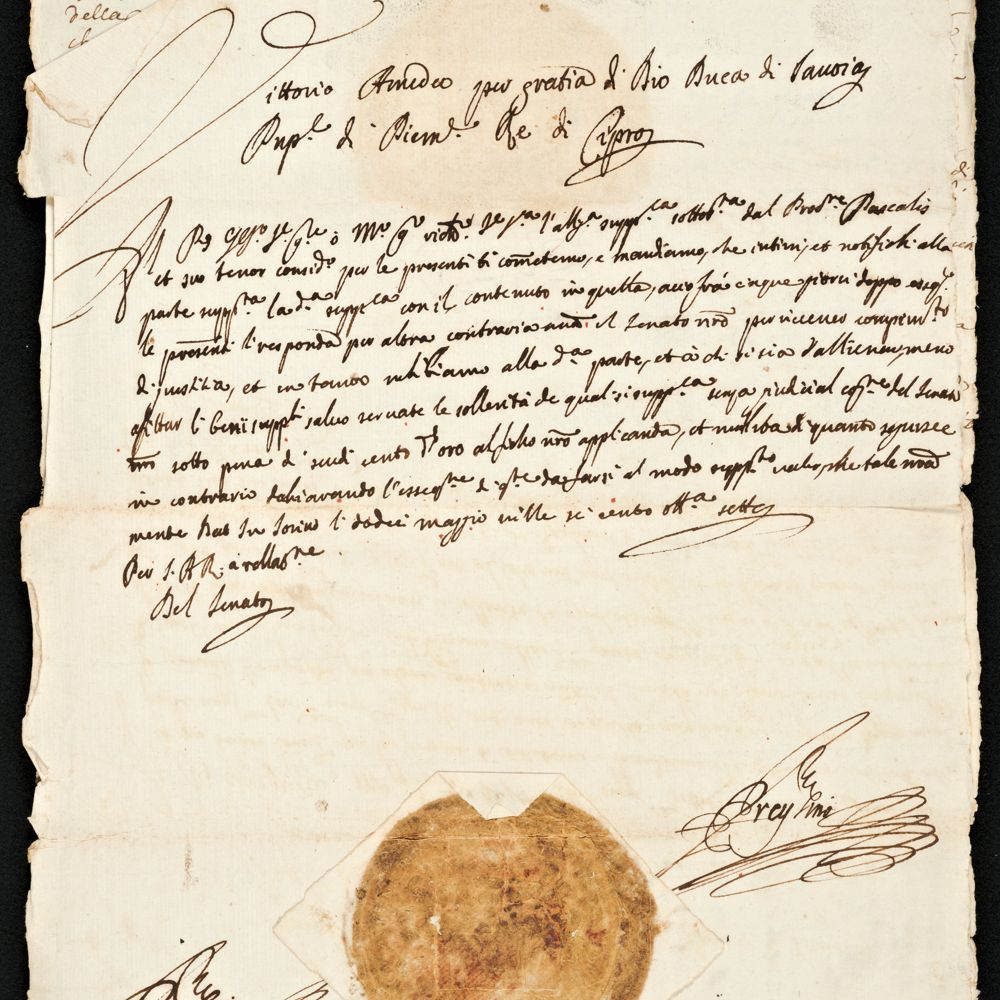 della
Vittorio Amedeo per gratia di Dio Duca di Savoia
Pnp.e di Piem.e Re di Cipro
Al p.o ss.o Se.e
vista la alleg.a supp.ca sottos.ta dal Pro.re Pascalis
et suo tenor consid.o per le presenti ti cometemo, e mandiamo, che intimi, et notifichi alla
parte supp.ta la d.a supp.ca con il contenuto in quella, acciò frà cinque giorni doppo
le presenti li responda per altra contraria nti il Senato nrõ per riceuer compim.to
di justitia, et in tanto inhibiamo alla d.a parte, et à chi si sia d'allienar, meno
affittar li beni supp.ti salvo servate le sollenità de qual si supp.ca senza judicial cog.ne del Senato
nrõ sotto pena di scudi cento d'oro al fisco nrõ applicanda, et nullità di quanto seguisse
in contrario dichiarando l'essequ.ne di q.te da farsi al modo supp.to valer, che tale nrã
mente Dat In Torino li dodeci maggio mille sei cento ott.a sette
Per S. A R. à rellas.ne
Del Senato